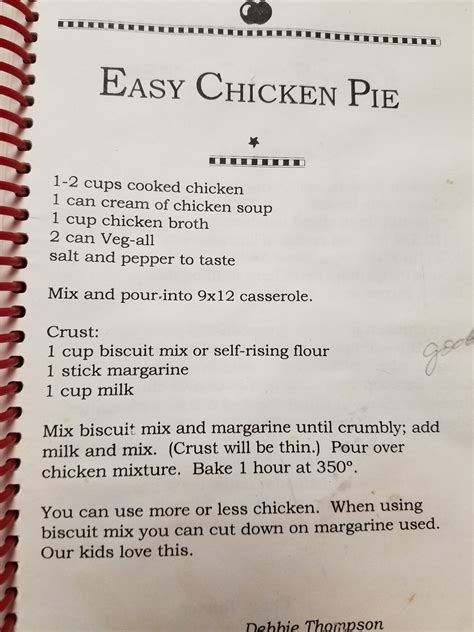 EASY CHICKEN PIE
1-2 cups cooked chicken
1 can cream of chicken soup
1 cup chicken broth
2 can Veg-all
salt and pepper to taste
Mix and pour into 9x12 casserole.
Crust:
1 cup biscuit mix or self-rising flour
1 stick margarine
1 cup milk
Mix biscuit mix and margarine until crumbly; add
milk and mix. (Crust will be thin.) Pour over
chicken mixture. Bake 1 hour at 350°.
You can use more or less chicken. When using
biscuit mix you can cut down on margarine used.
Our kids love this.
Debbie Thompson